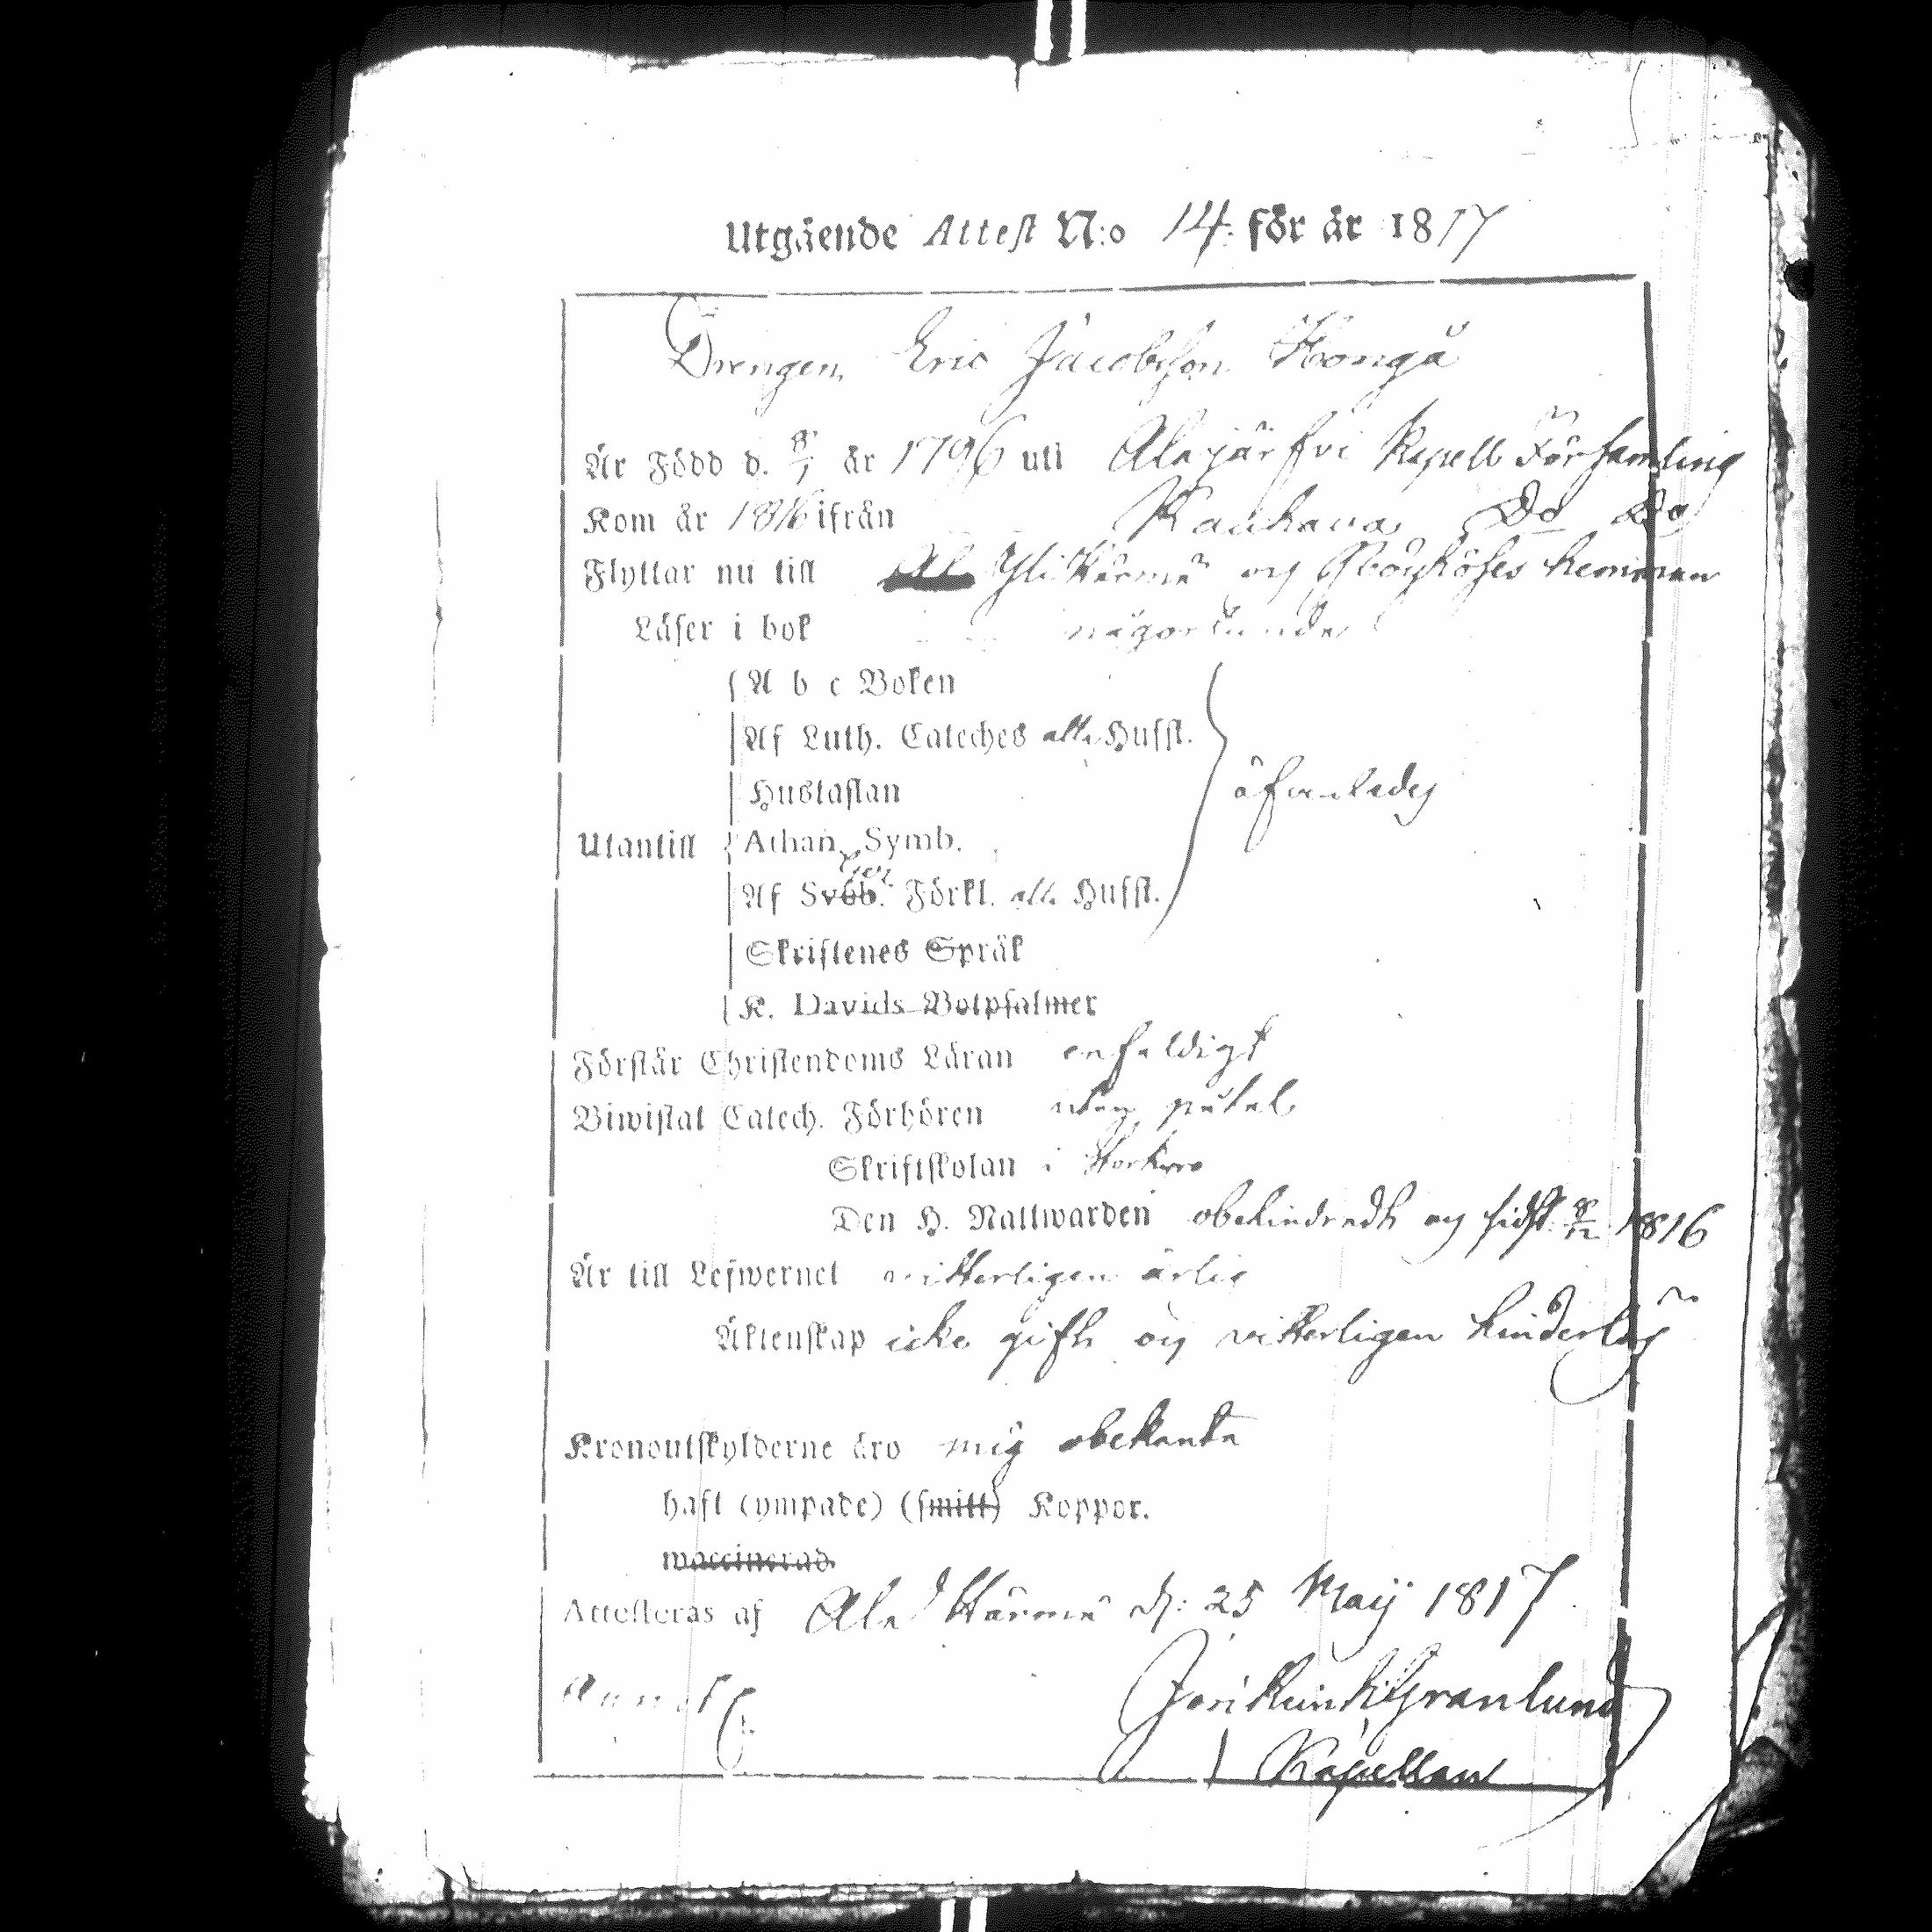 Utgående Attest N:o 14. för år 1817
Drengen Eric Jacobsson Kongå
Är Född d. 8/1 år 1796 uti Alajärfvi Kapell Församling
Kom år 1816 ifrån Kauhava Do Do
Flyttar nu till Yli Härmä og hemman
Läser i bok någorlunda
A b c Boken
Af Luth. Cateches alla Hufst.
Hustaflan
åfvenledes
Utantill Athan. Symb.
Af Svebb. Förkl. alla Hufst.
Skriftenes Språk
K. Davids Botpsalmer
Förstår Christendoms Läran enfaldigt
Biwistat Catech. Förhören utan påtal
Skriftskolan i Storkyro
Den H. Nattwarden obehindradt og sidst 8/12 1816
Är till Lefwernet vitterligen ärlig
Äktenskap icke gift og vitterligen hinderlös
Kronoutskylderne äro mig obekanta
haft (ympade) (smitt) Koppor.
waccinerad.
Attesteras af Ala Härmä d: 25 Maij 1817
Joh Henr Granlund
Kapellan